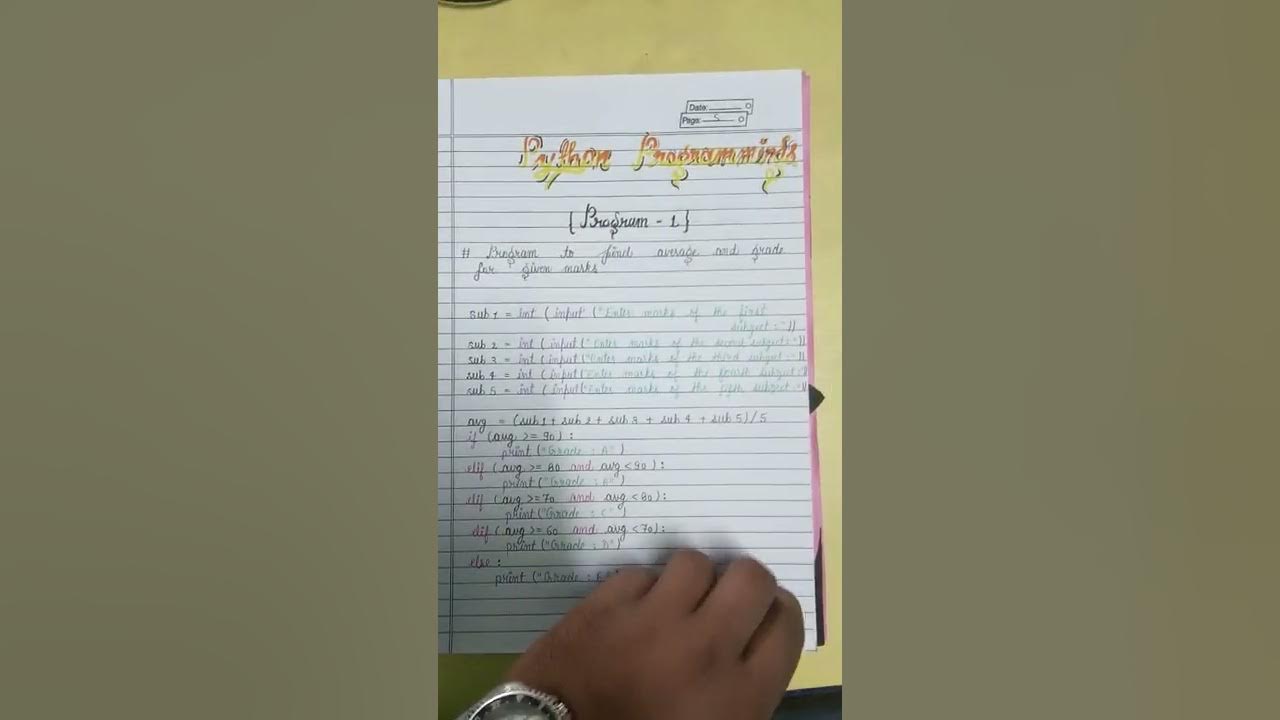 Date:
Page: 5
Python Programming
{ Program - 1 }
# Program to find average and grade
for given marks
sub 1 = int ( input ("Enter marks of the first
subject : "))
sub 2 = int ( input ("Enter marks of the second subject:"))
sub 3 = int ( input ("Enter marks of the third subject :"))
sub 4 = int ( input ("Enter marks of the fourth subject :"))
sub 5 = int ( input ("Enter marks of the fifth subject :"))
avg = (sub 1 + sub 2 + sub 3 + sub 4 + sub 5) / 5
if (avg >= 90) :
print ("Grade : A")
elif ( avg >= 80 and avg < 90 ) :
print ("Grade : B")
elif ( avg >= 70 and avg < 80) :
print ("Grade : C")
elif ( avg >= 60 and avg < 70) :
print ("Grade : D")
else :
print ("Grade :